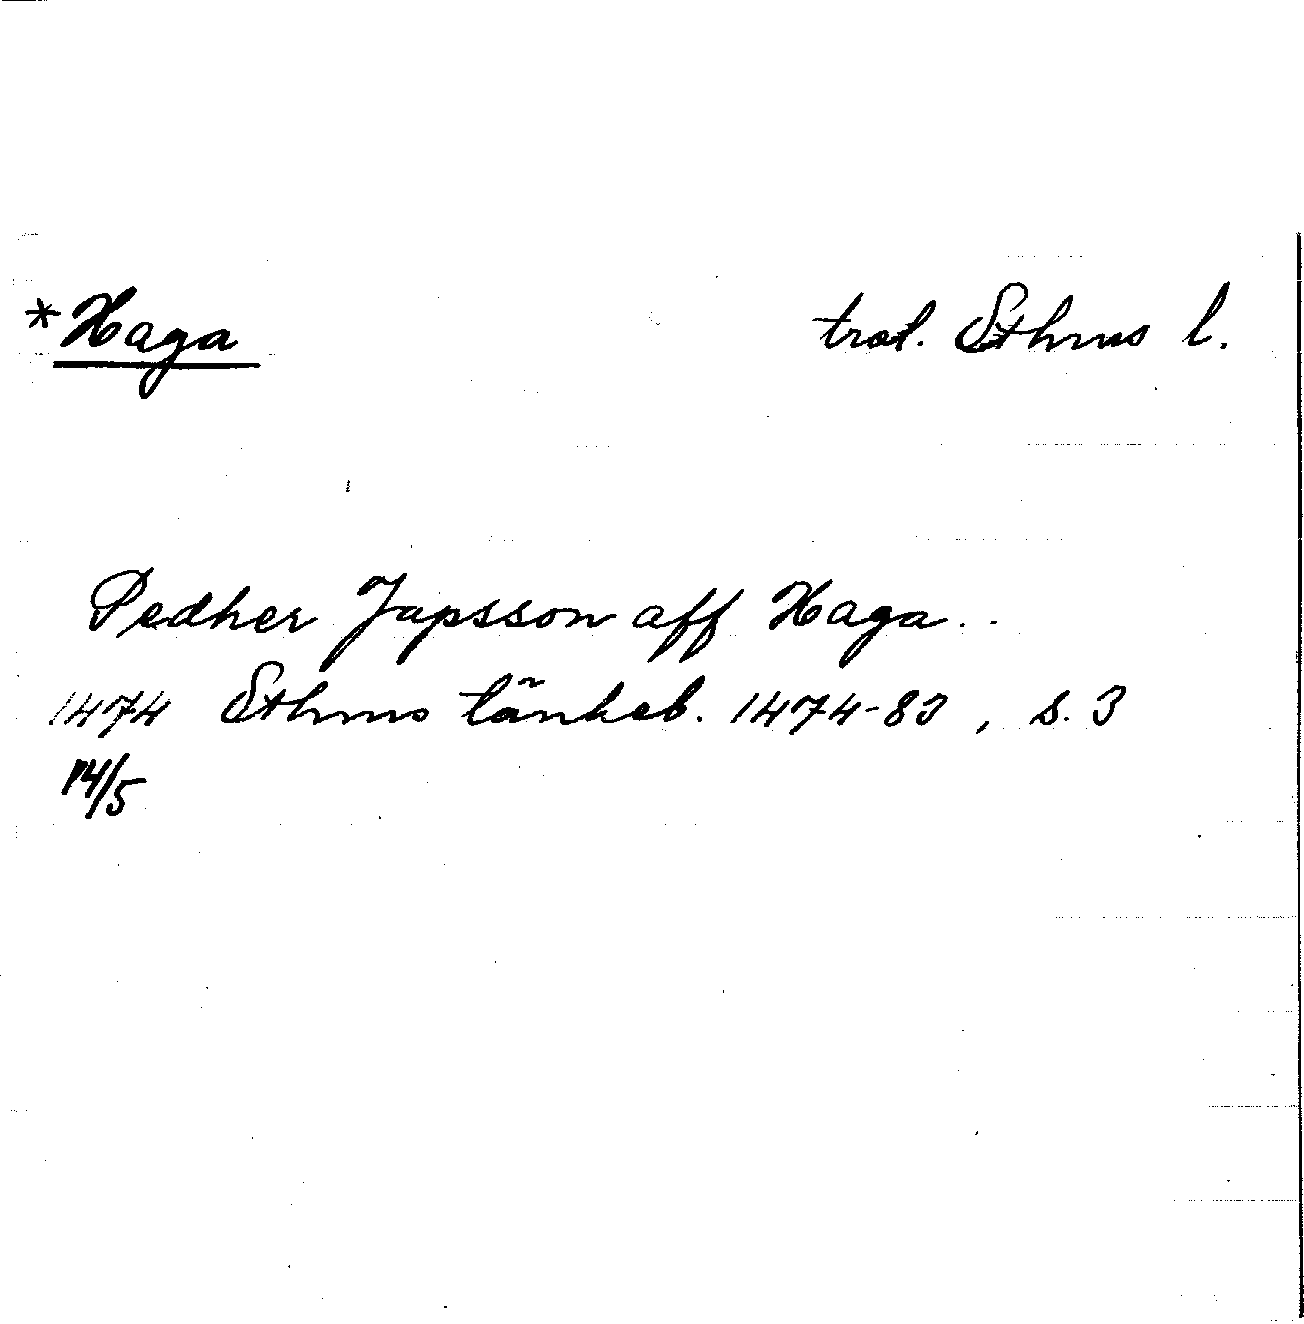 *Haga
trol. Sthms l.
Pedher Japsson aff Haga..
1474 Sthms tänkeb. 1474-83, s. 3
14/5